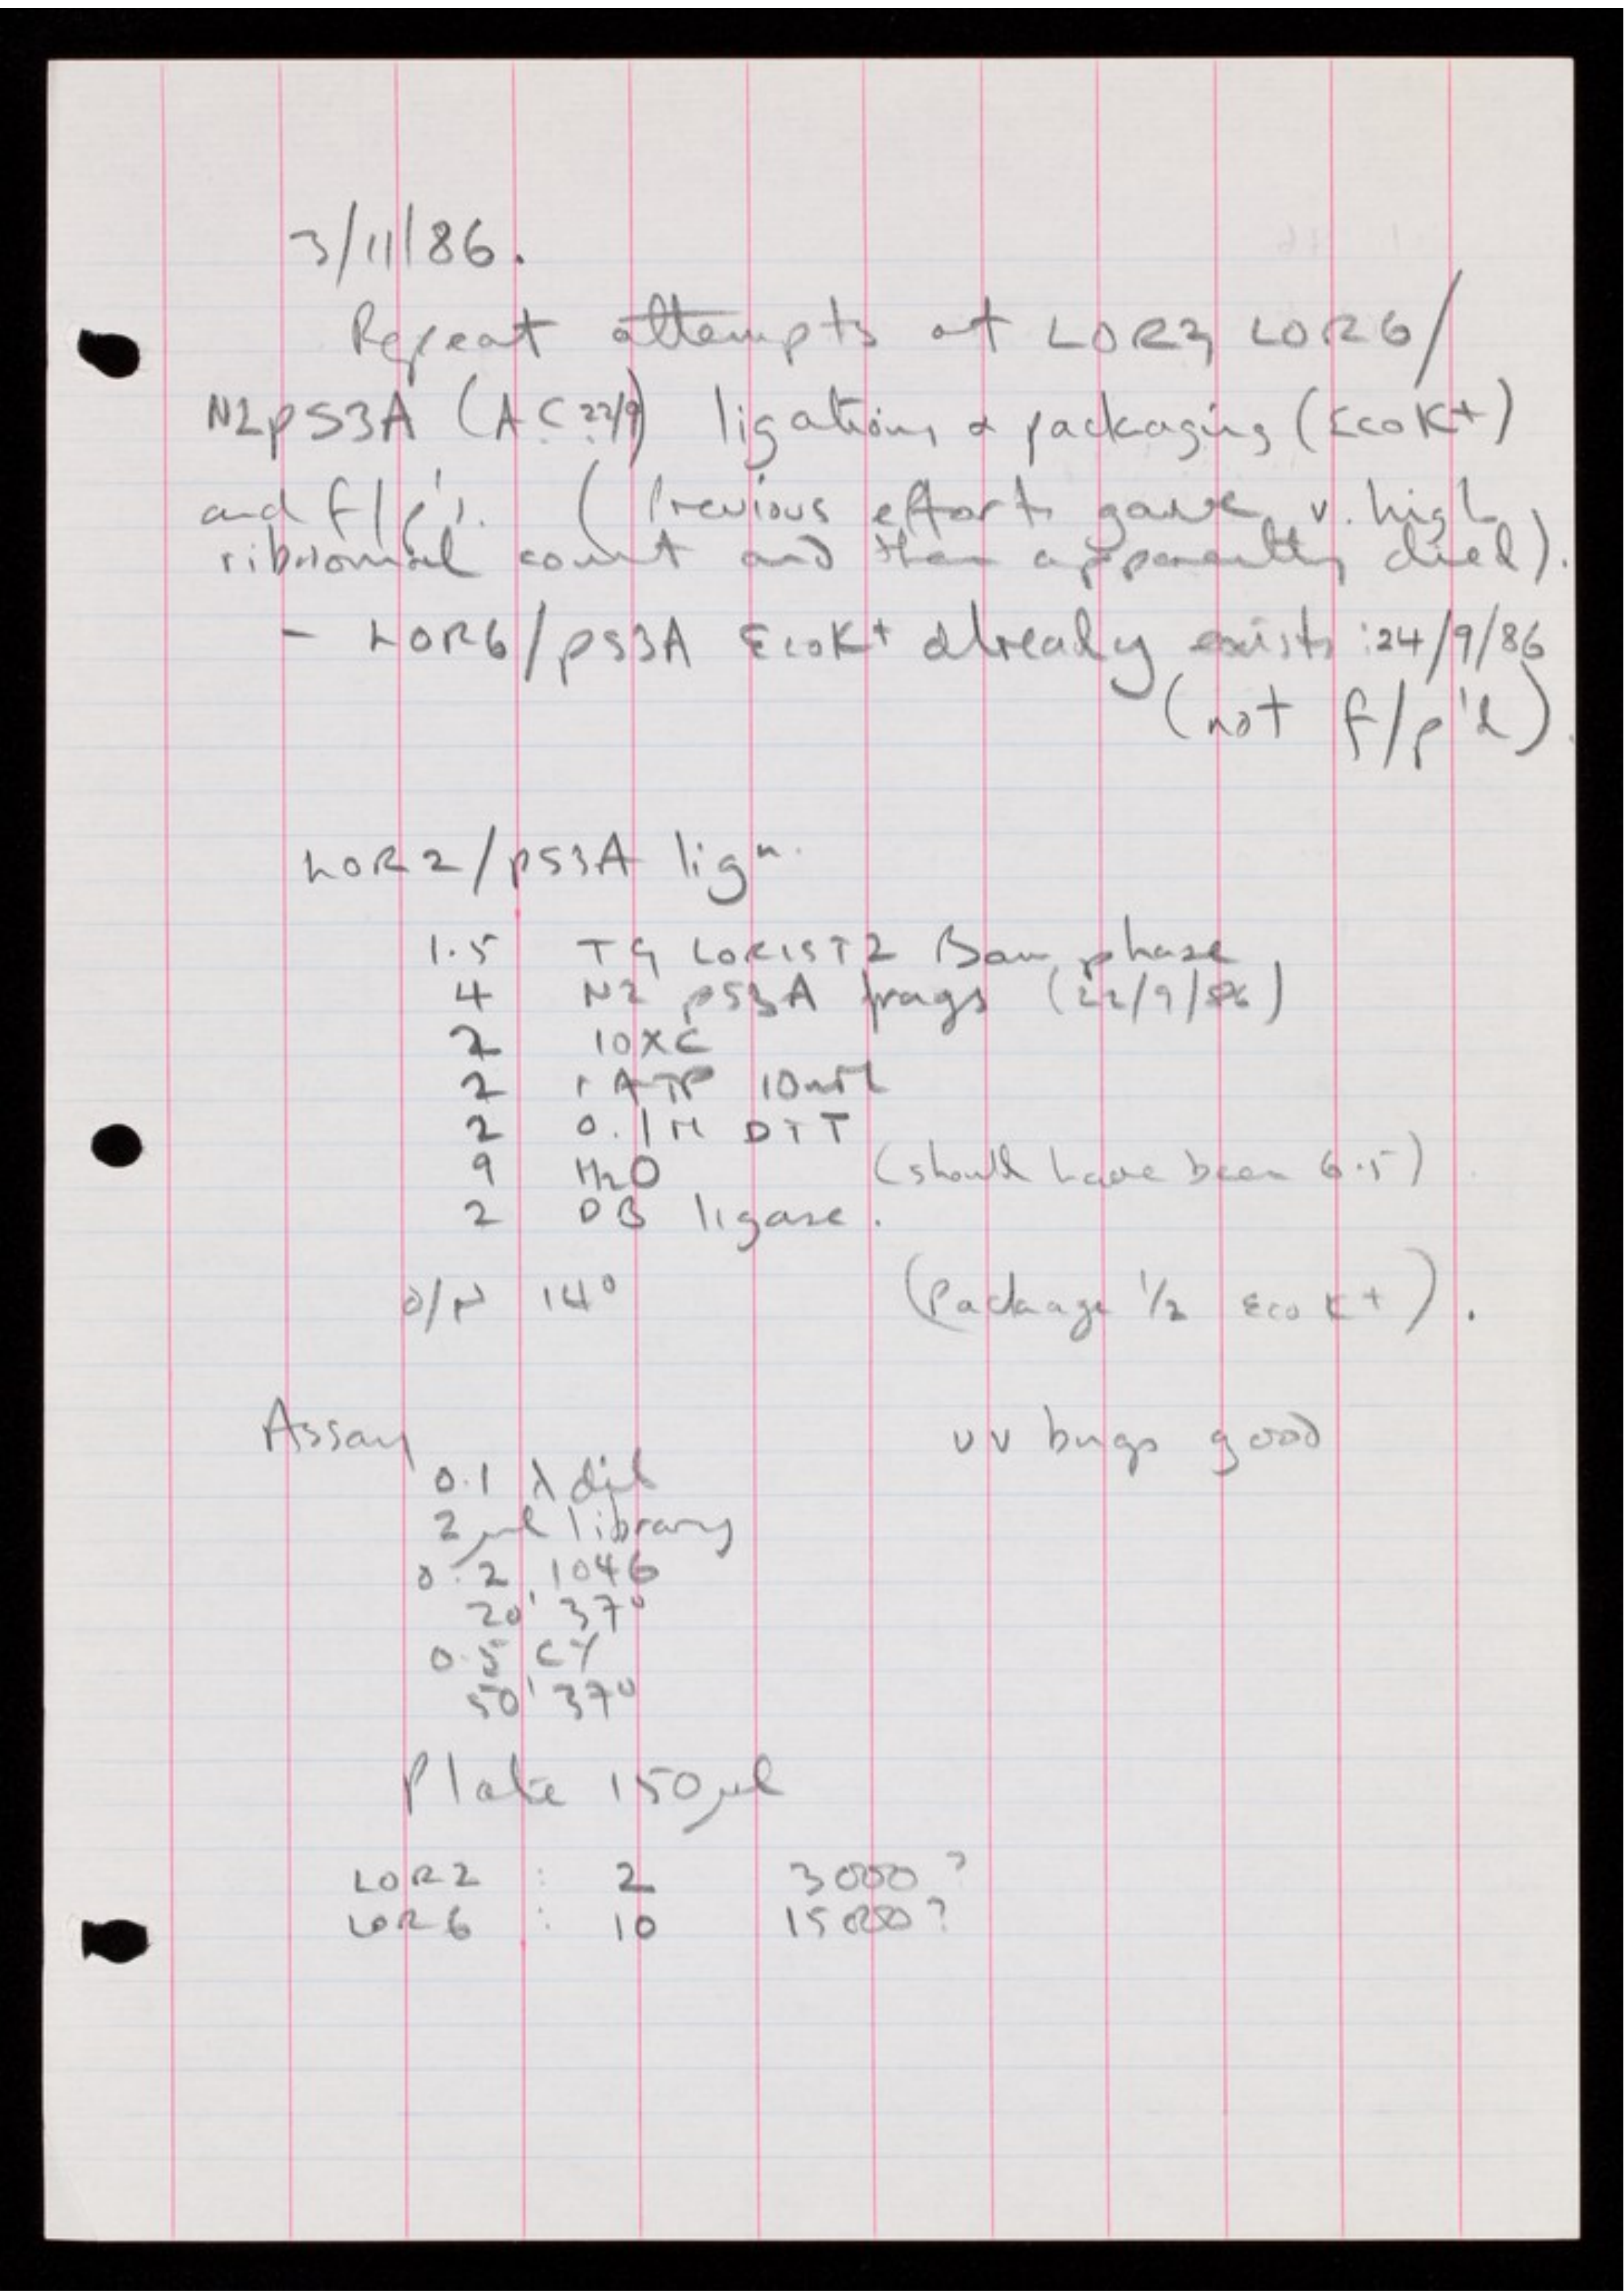 3/11/86.
Repeat attempts at LOR2, LOR6/
N2pS3A (A.C. 22/9) ligations & packaging (EcoK+)
and f/p's. (Previous efforts gave v. high
ribosomal count and then apparently died).
- LOR6/pS3A EcoK+ already exists : 24/9/86
(not f/p'd).
LOR2/pS3A lign.
1.5 LORIST2 Bam phase
4 N2 pS3A frags (22/9/86)
2 10XC
2 rATP 10mM
2 0.1M DTT
9 H2O (should have been 6.5)
2 DB ligase.
O/N 14° (Package 1/2 EcoK+).
Assay uv bugs good
0.1 λ dil
2 μl library
0.2 1046
20' 37°
0.5 CY
50' 37°
Plate 150μl
LOR2 : 2 3000?
LOR6 : 10 15000?